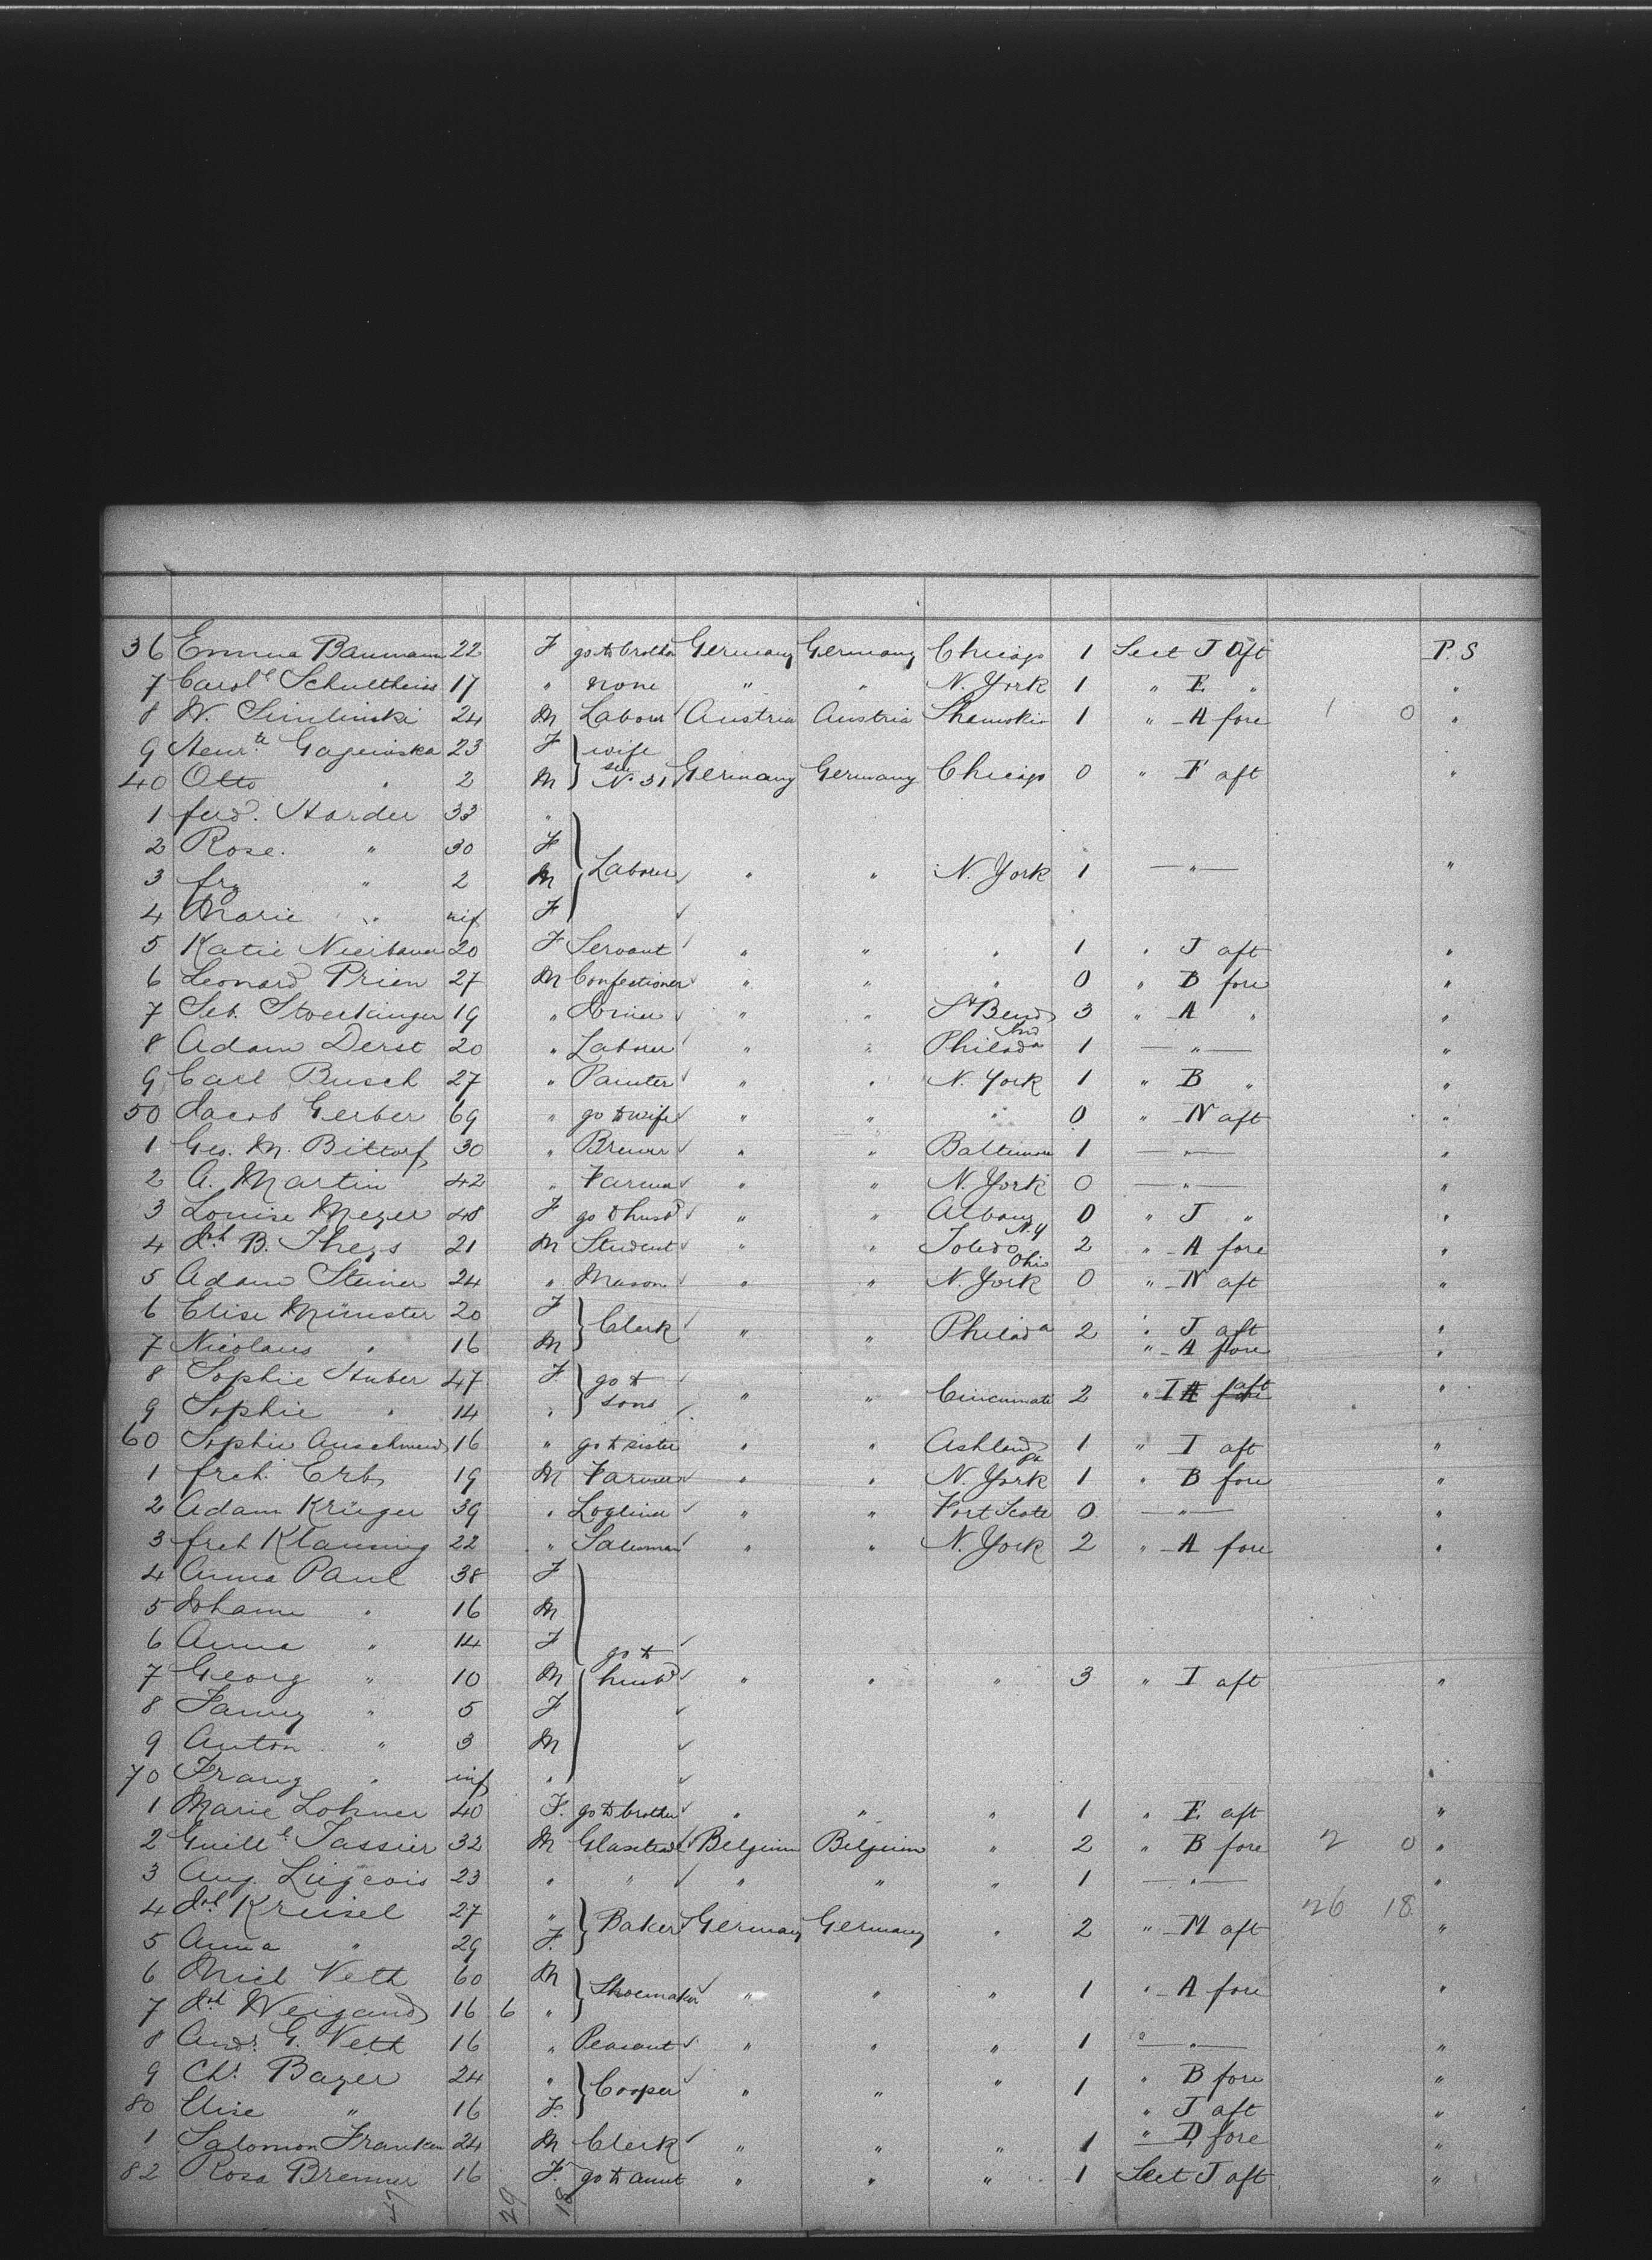 36 Emma Baumann 22 F go to brother Germany Germany Chicago 1 Sect J Aft P.S
7 Carol^e Schultheiss 17 " none " " N. York 1 " E " "
8 W. Simlinski 24 M Labour Austria Austria Shamokin 1 " A fore 1 0 "
9 Henr^tte Gagewska 23 F wife
40 Otto " 2 M see N. 31 Germany Germany Chicago 0 " F aft "
1 ferd. Harder 33 "
2 Rose " 30 F
3 frz " 2 M Labourer " " N. York 1 — " — "
4 Marie " inf F
5 Katie 20 F Servant " " " 1 " J aft "
6 Leonard Prien 27 M Confectioner " " " 0 " B fore "
7 Seb. 19 " " " S^th Bend Ind 3 " A " "
8 Adam Derst 20 " Labourer " " Philad^a 1 — " — "
9 Carl Busch 27 " Painter " " N. York 1 " B " "
50 Jacob Gerber 69 " go to wife " " " 0 " N aft "
1 Geo. M. Bittorf 30 " Brewer " " Baltimore 1 — " — "
2 A. Martin 42 " Farmer " " N. York 0 — " — "
3 Louise Meyer 48 F go to husb^d " " Albany N.Y 0 " J " "
4 Joh B. Theys 21 M Student " " Toledo Ohio 2 " A fore "
5 Adam Steiner 24 " Mason " " N. York 0 " N aft "
6 Elise Münster 20 F
7 Nicolaus " 16 M Clerk " " Philad^a 2 " J aft "
" A fore "
8 Sophie Huber 47 F go to
9 Sophie " 14 " sons " " Cincinnati 2 " I aft "
60 Sophie 16 " go to sister " " Ashland Pa 1 " I aft "
1 frch. Erb 19 M Farmer " " N. York 1 " B fore "
2 Adam Krüger 39 " " " Fort Scott 0 — " — "
3 frch Klausing 22 " Salesman " " N. York 2 " A fore "
4 Anna Paul 38 F
5 Johann " 16 M
6 Anna " 14 F go to
7 Georg " 10 M husb^d " " " 3 " I aft "
8 Fanny " 5 F
9 Anton " 3 M
70 Franz " inf " "
1 Marie Lohner 40 F. go to brother " " " 1 " E aft "
2 Guill^e Tassier 32 M Belgium Belgium " 2 " B fore 2 0 "
3 Aug. Liegeois 23 " " " " " 1 — " — "
4 Joh Kreisel 27 " 26 18
5 Anna " 29 F. Baker Germany Germany " 2 " M aft "
6 Mich Veth 60 M
7 Joh Weigand 16 6 " Shoemaker " " " 1 " A fore "
8 Andr. G. Veth 16 " Peasant " " " 1 — " — "
9 Chs. Bayer 24 " Cooper " " " 1 " B fore "
80 Elise " 16 F. " J aft "
1 Salomon Franken 24 M Clerk " " " 1 " D fore "
82 Rosa Brenner 16 F. go to aunt " " " 1 Sect J aft "
47 29 18